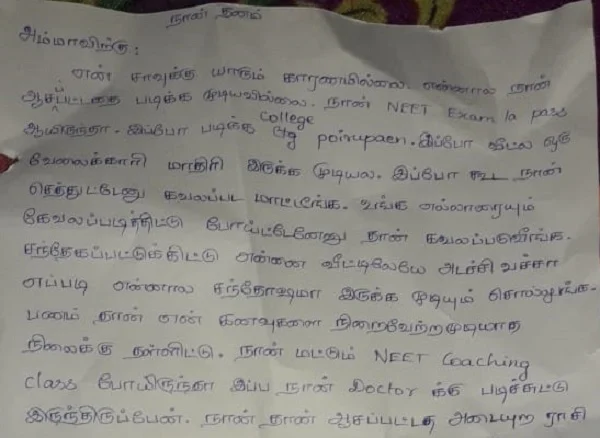 நான் தனம்
அம்மாவிற்கு :
என் சாவுக்கு யாரும் காரணமில்லை. என்னால நான்
ஆசபட்டதை படிக்க முடியவில்லை. நான் NEET Exam la pass
ஆயிருந்தா. இப்போ படிக்க College
க்கு poirupaen. இப்போ வீட்ல ஒரு
வேலைக்காரி மாதிரி இருக்க முடியல. இப்போ கூட நான்
செத்துட்டேனு கவலப்பட மாட்டீங்க. உங்க எல்லாரையும்
கேவலப்படித்திட்டு போய்ட்டேனேனு தான் கவலபடுவீங்க.
சந்தேகப்பட்டுக்திட்டு என்னை வீட்டிலேயே அடச்சி வச்சா
எப்படி என்னால சந்தோஷமா இருக்க முடியும் சொல்லுங்க.
பணம் தான் என் கனவுகளை நிறைவேற்றமுடியாத
நிலைக்கு தள்ளிட்டு. நான் மட்டும் NEET Coaching
Class போயிருந்தா இப்ப நான் Doctor க்கு படிச்சுட்டு
இருந்திருப்பேன். நான் தான் ஆசப்பட்டத அடையுற ராசி